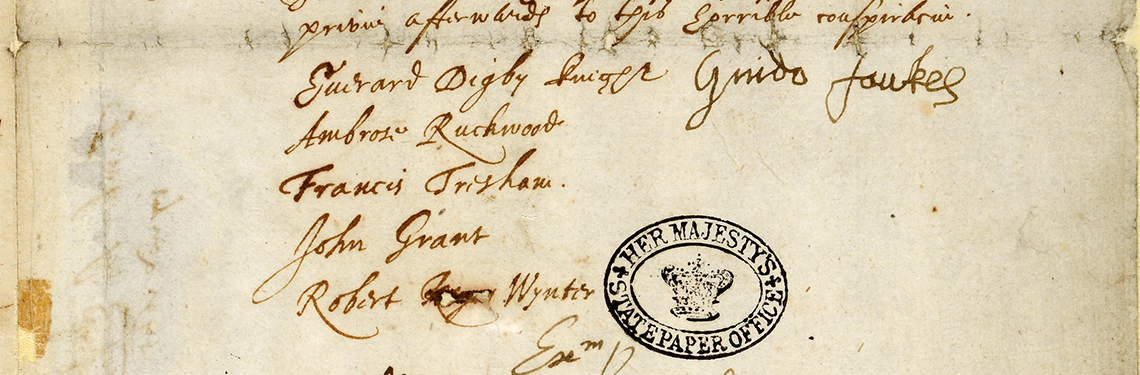 privie afterwards to this horrible conspiracie.
Everard Digby knight Guido fawkes
Ambrose Ruckwood
Francis Tresham.
John Grant
Robert Wynter
HER MAJESTY'S
STATE PAPER OFFICE
Exm